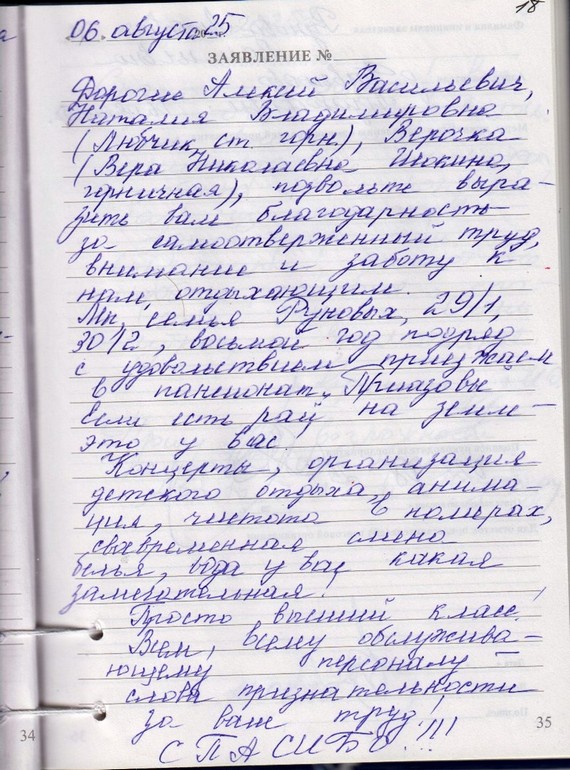 18
06. августа 25
ЗАЯВЛЕНИЕ №
Дорогие Алексей Васильевич,
Наталия Владимировна
(Любчик, ст. горн.), Верочка
(Вера Николаевна
горничная), позвольте выра-
зить вам благодарность
за самоотверженный труд,
внимание и заботу к
нам, отдыхающим.
Мы, семья Руновых, 29/1,
30/2, восьмой год подряд
с удовольствием приезжаем
в пансионат "Приазовье"
если есть рай на земле-
это у вас
Концерты, организация
детского отдыха, анима-
ция, чистота в номерах,
своевременная смена
белья, вода у вас какая
замечательная!
Просто высший класс!
Всем, всему обслужива-
ющему персоналу -
слова признательности
за ваш труд!
СПАСИБО!!!
34
35